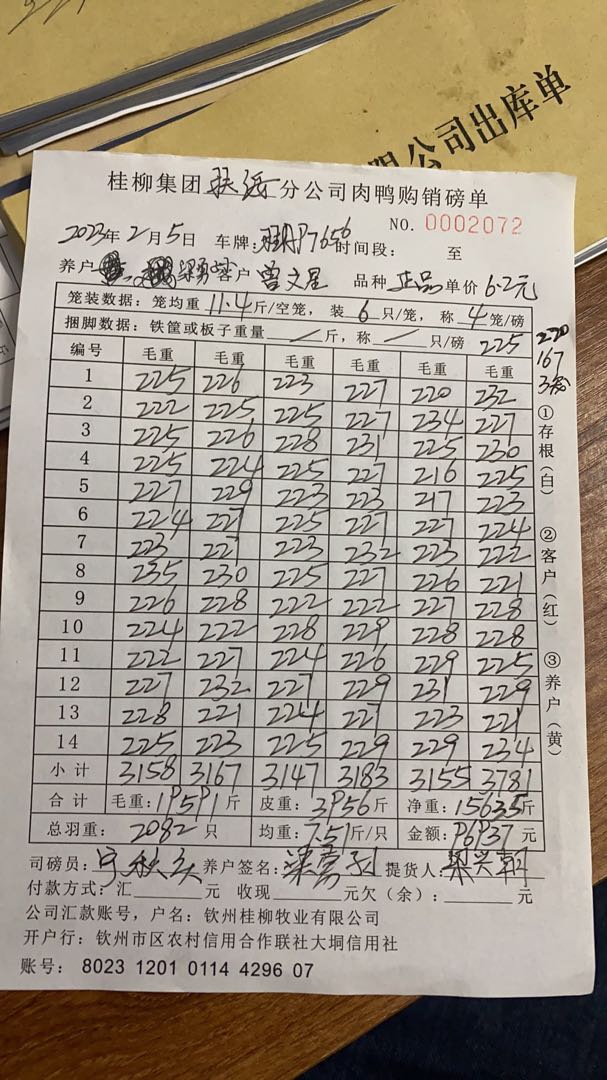 限公司出库单
桂柳集团扶绥分公司肉鸭购销磅单
NO. 0002072
2023年2月5日 车牌: P7656 时间段: 至
养户 客户 曾文星 品种 正品 单价 6.2元
笼装数据: 笼均重 11.4 斤/空笼, 装 6 只/笼, 称 4 笼/磅
捆脚数据: 铁筐或板子重量 / 斤, 称 / 只/磅 225
220
167
编号 毛重 毛重 毛重 毛重 毛重 毛重
1 225 226 223 227 220 232
2 222 225 225 227 234 227
3 225 226 228 231 225 230
4 225 224 225 227 216 225
5 227 229 223 223 217 223
6 224 227 225 227 227 224
7 223 227 223 232 223 222
8 235 230 225 227 226 221
9 226 228 222 222 227 228
10 224 222 228 229 228 228
11 222 227 224 226 229 225
12 227 232 227 229 231 229
13 228 221 224 227 223 221
14 225 223 225 229 229 234
小计 3158 3167 3147 3183 3155 3781
合计 毛重: 19591斤 皮重: 3956斤 净重: 15635斤
总羽重: 2082 只 均重: 7.51斤/只 金额: 96937 元
司磅员: 养户签名: 提货人: 梁兴朝
付款方式: 汇 元 收现 元欠(余): 元
公司汇款账号, 户名: 钦州桂柳牧业有限公司
开户行: 钦州市区农村信用合作联社大垌信用社
账号: 8023 1201 0114 4296 07
①存根(白) ②客户(红) ③养户(黄)